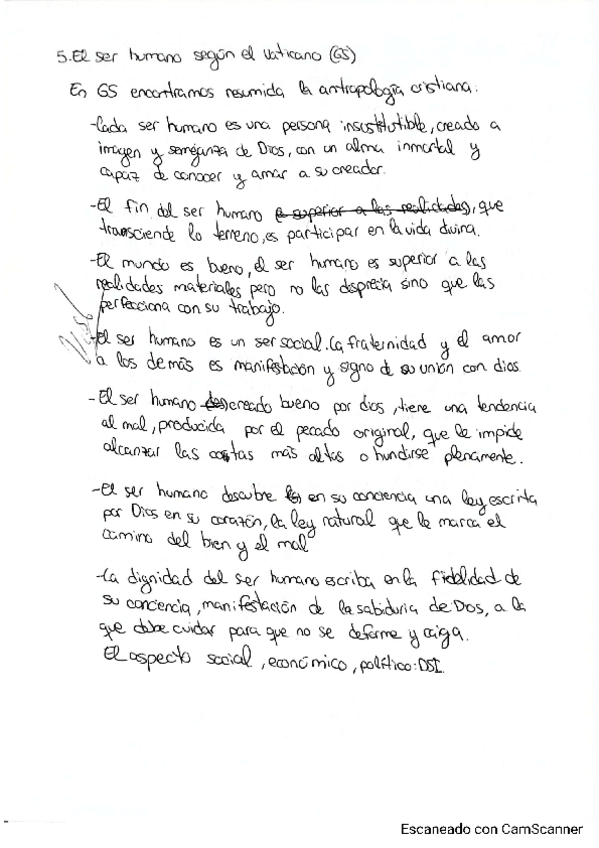 5. El ser humano según el Vaticano (GS)
En GS encontramos resumida la antropología cristiana:
-Cada ser humano es una persona insustituible, creado a
imagen y semejanza de Dios, con un alma inmortal y
capaz de conocer y amar a su creador.
-El fin del ser humano (e superior a las realidades), que
transciende lo terreno, es participar en la vida divina.
-El mundo es bueno, el ser humano es superior a las
realidades materiales pero no las desprecia sino que las
perfecciona con su trabajo.
-El ser humano es un ser social. La fraternidad y el amor
a los demás es manifestación y signo de su unión con dios.
-El ser humano creado bueno por dios, tiene una tendencia
al mal, producida por el pecado original, que le impide
alcanzar las cotas más altas o hundirse plenamente.
-El ser humano descubre en su conciencia una ley escrita
por Dios en su corazón, la ley natural que le marca el
camino del bien y el mal
-La dignidad del ser humano escriba en la fidelidad de
su conciencia, manifestación de la sabiduria de Dios, a la
que debe cuidar para que no se deforme y caiga.
El aspecto social, económico, político: DSI.
Escaneado con CamScanner